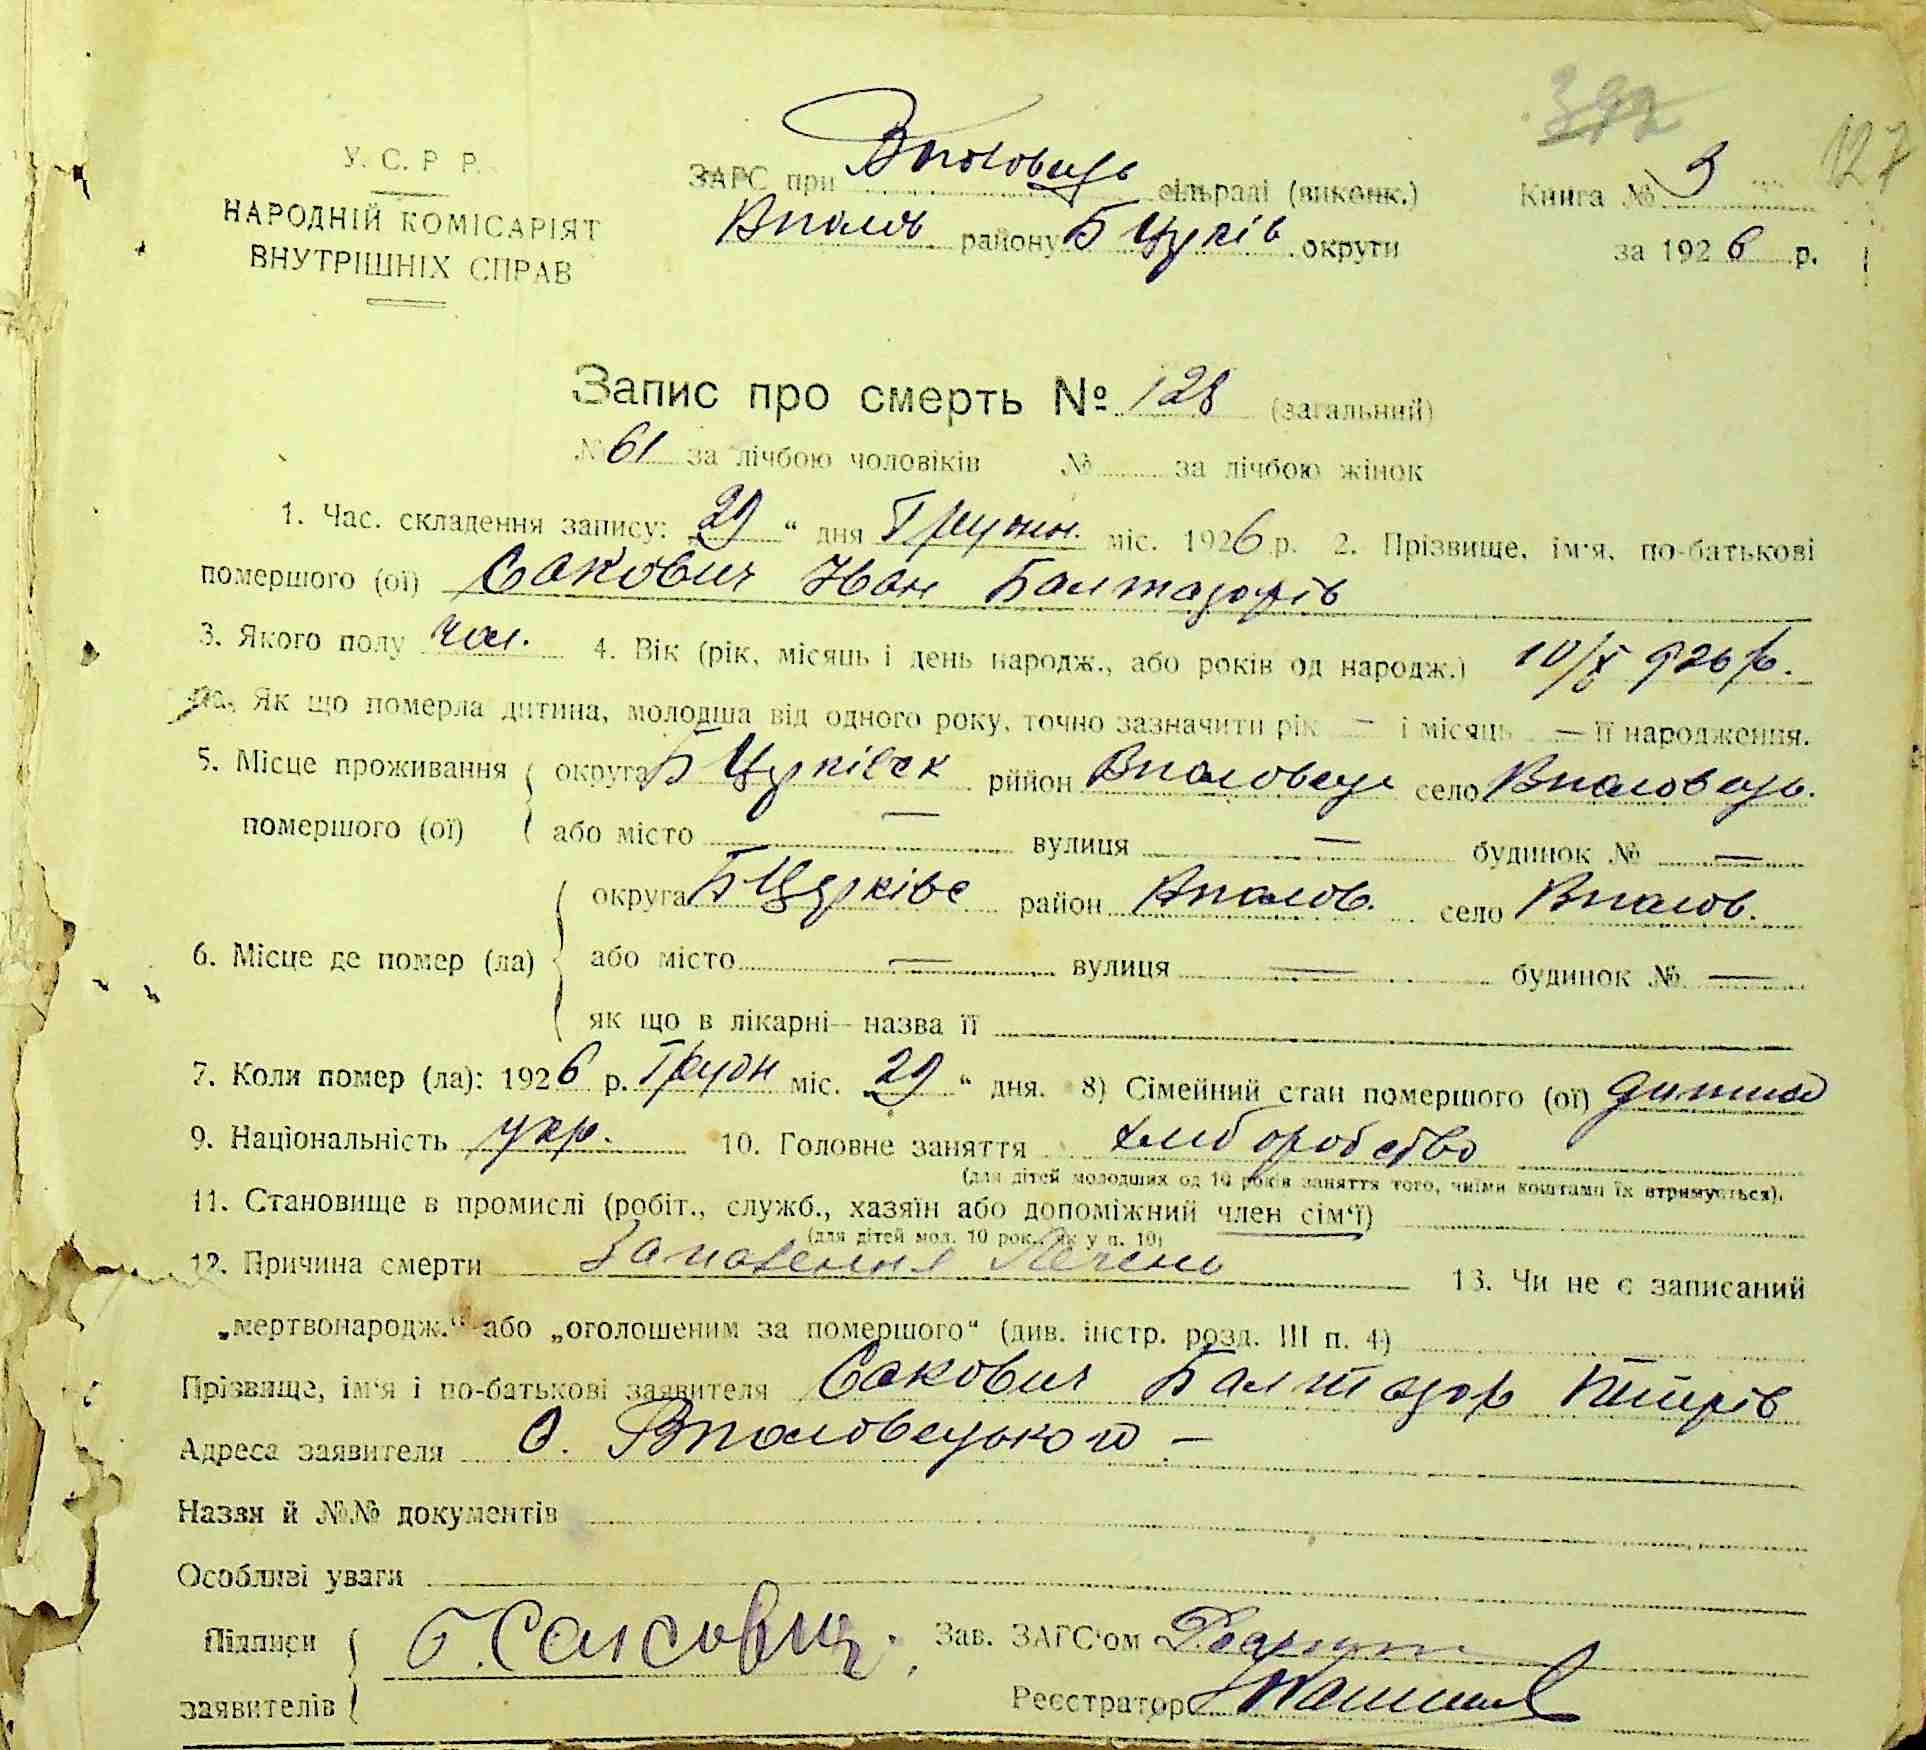 127
У. С. Р Р.
НАРОДНІЙ КОМІСАРІЯТ
ВНУТРІШНІХ СПРАВ
ЗАГС при сільраді (виконк.) Книга № 3
району Б Церків округи за 1926 р.
Запис про смерть № 128 (загальний)
№ 61 за лічбою чоловіків № за лічбою жінок
1. Час. складення запису: „29“ дня Грудня міс. 1926 р. 2. Прізвище, ім'я, по-батькові
помершого (ої) Сакович Иван Балтазорів
3. Якого полу чол. 4. Вік (рік, місяць і день народж., або років од народж.) 10/X 926 р.
4а. Як що померла дитина, молодша від одного року, точно зазначити рік — і місяць — її народження.
5. Місце проживання округа Б Церківск рййон село
помершого (ої) або місто — вулиця — будинок № —
округа Б Церківс район село
6. Місце де помер (ла) або місто — вулиця — будинок № —
як що в лікарні—назва її
7. Коли помер (ла): 1926 р. Грудн міс. „29“ дня. 8) Сімейний стан помершого (ої) дитина
9. Національність укр. 10. Головне заняття хлиборобство
(для дітей молодших од 10 років заняття того, чиїми коштами їх втримується).
11. Становище в промислі (робіт., служб., хазяїн або допоміжний член сім'ї)
(для дітей мол. 10 рок., як у п. 10)
12. Причина смерти Запалення 13. Чи не є записаний
„мертвонародж.“ або „оголошеним за помершого“ (див. інстр. розд. III п. 4)
Прізвище, ім'я і по-батькові заявителя Сакович Балтазор
Адреса заявителя С.
Назви й №№ документів
Особливі уваги
Підписи Зав. ЗАГС'ом
заявителів Реєстратор